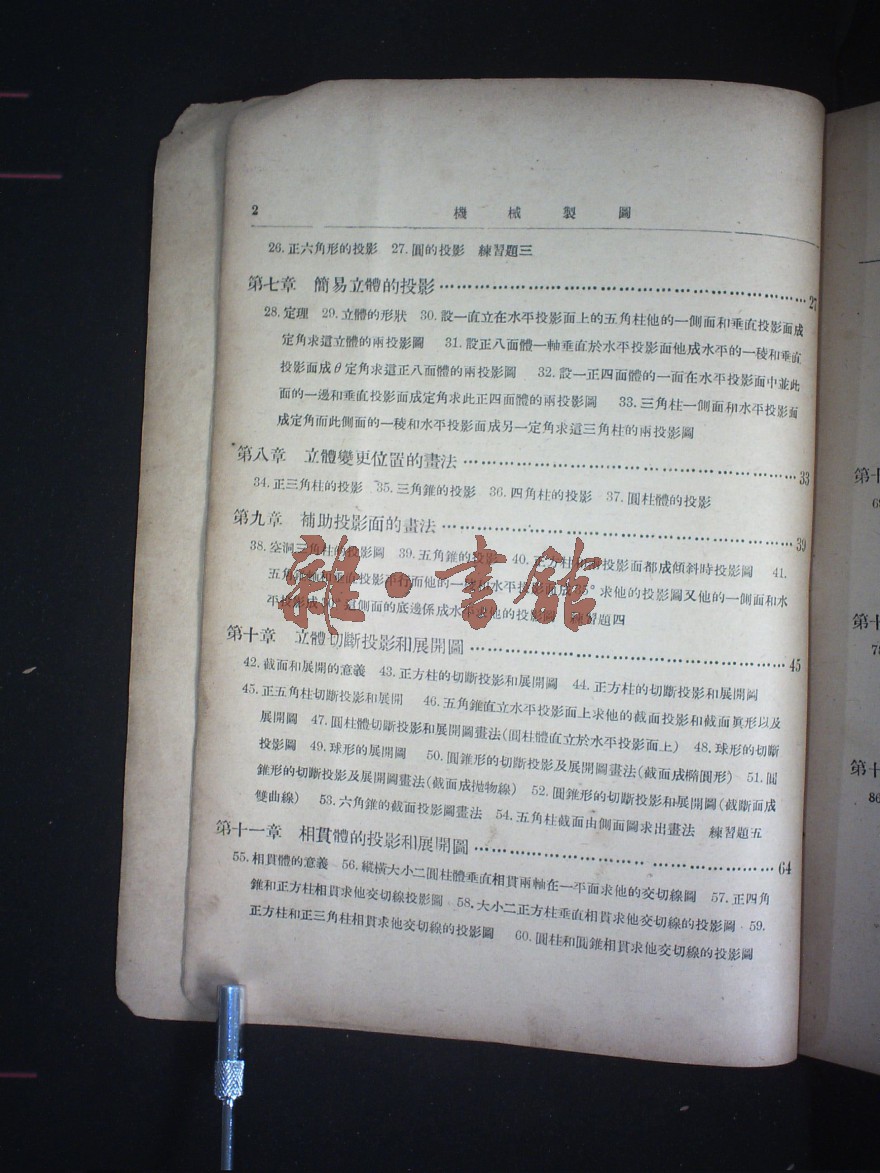 2 機械製圖
26.正六角形的投影 27.圓的投影 練習題三
第七章 簡易立體的投影 27
28.定理 29.立體的形狀 30.設一直立在水平投影面上的五角柱他的一側面和垂直投影面成
定角求這立體的兩投影圖 31.設正八面體一軸垂直於水平投影面他成水平的一稜和垂直
投影面成θ定角求這正八面體的兩投影圖 32.設一正四面體的一面在水平投影面中並此
面的一邊和垂直投影面成定角求此正四面體的兩投影圖 33.三角柱一側面和水平投影面
成定角而此側面的一稜和水平投影面成另一定角求這三角柱的兩投影圖
第八章 立體變更位置的畫法 33
34.正三角柱的投影 35.三角錐的投影 36.四角柱的投影 37.圓柱體的投影
第九章 補助投影面的畫法 39
38.空洞三角柱的投影圖 39.五角錐的投影 40.正方柱和兩投影面都成傾斜時投影圖 41.
五角錐軸和垂直投影平行而他的一稜和水平投影面成 求他的投影圖又他的一側面和水
平投影成 這側面的底邊係成水平求他的投影圖 練習題四
第十章 立體切斷投影和展開圖 45
42.截面和展開的意義 43.正方柱的切斷投影和展開圖 44.正方柱的切斷投影和展開圖
45.正五角柱切斷投影和展開 46.五角錐直立水平投影面上求他的截面投影和截面眞形以及
展開圖 47.圓柱體切斷投影和展開圖畫法(圓柱體直立於水平投影面上) 48.球形的切斷
投影圖 49.球形的展開圖 50.圓錐形的切斷投影及展開圖畫法(截面成橢圓形) 51.圓
錐形的切斷投影及展開圖畫法(截面成拋物線) 52.圓錐形的切斷投影和展開圖(截斷面成
雙曲線) 53.六角錐的截面投影圖畫法 54.五角柱截面由側面圖求出畫法 練習題五
第十一章 相貫體的投影和展開圖 64
55.相貫體的意義 56.縱橫大小二圓柱體垂直相貫兩軸在一平面求他的交切線圖 57.正四角
錐和正方柱相貫求他交切線投影圖 58.大小二正方柱垂直相貫求他交切線的投影圖 59.
正方柱和正三角柱相貫求他交切線的投影圖 60.圓柱和圓錐相貫求他交切線的投影圖
雜·書館
第十
69
第十
78
第十
86